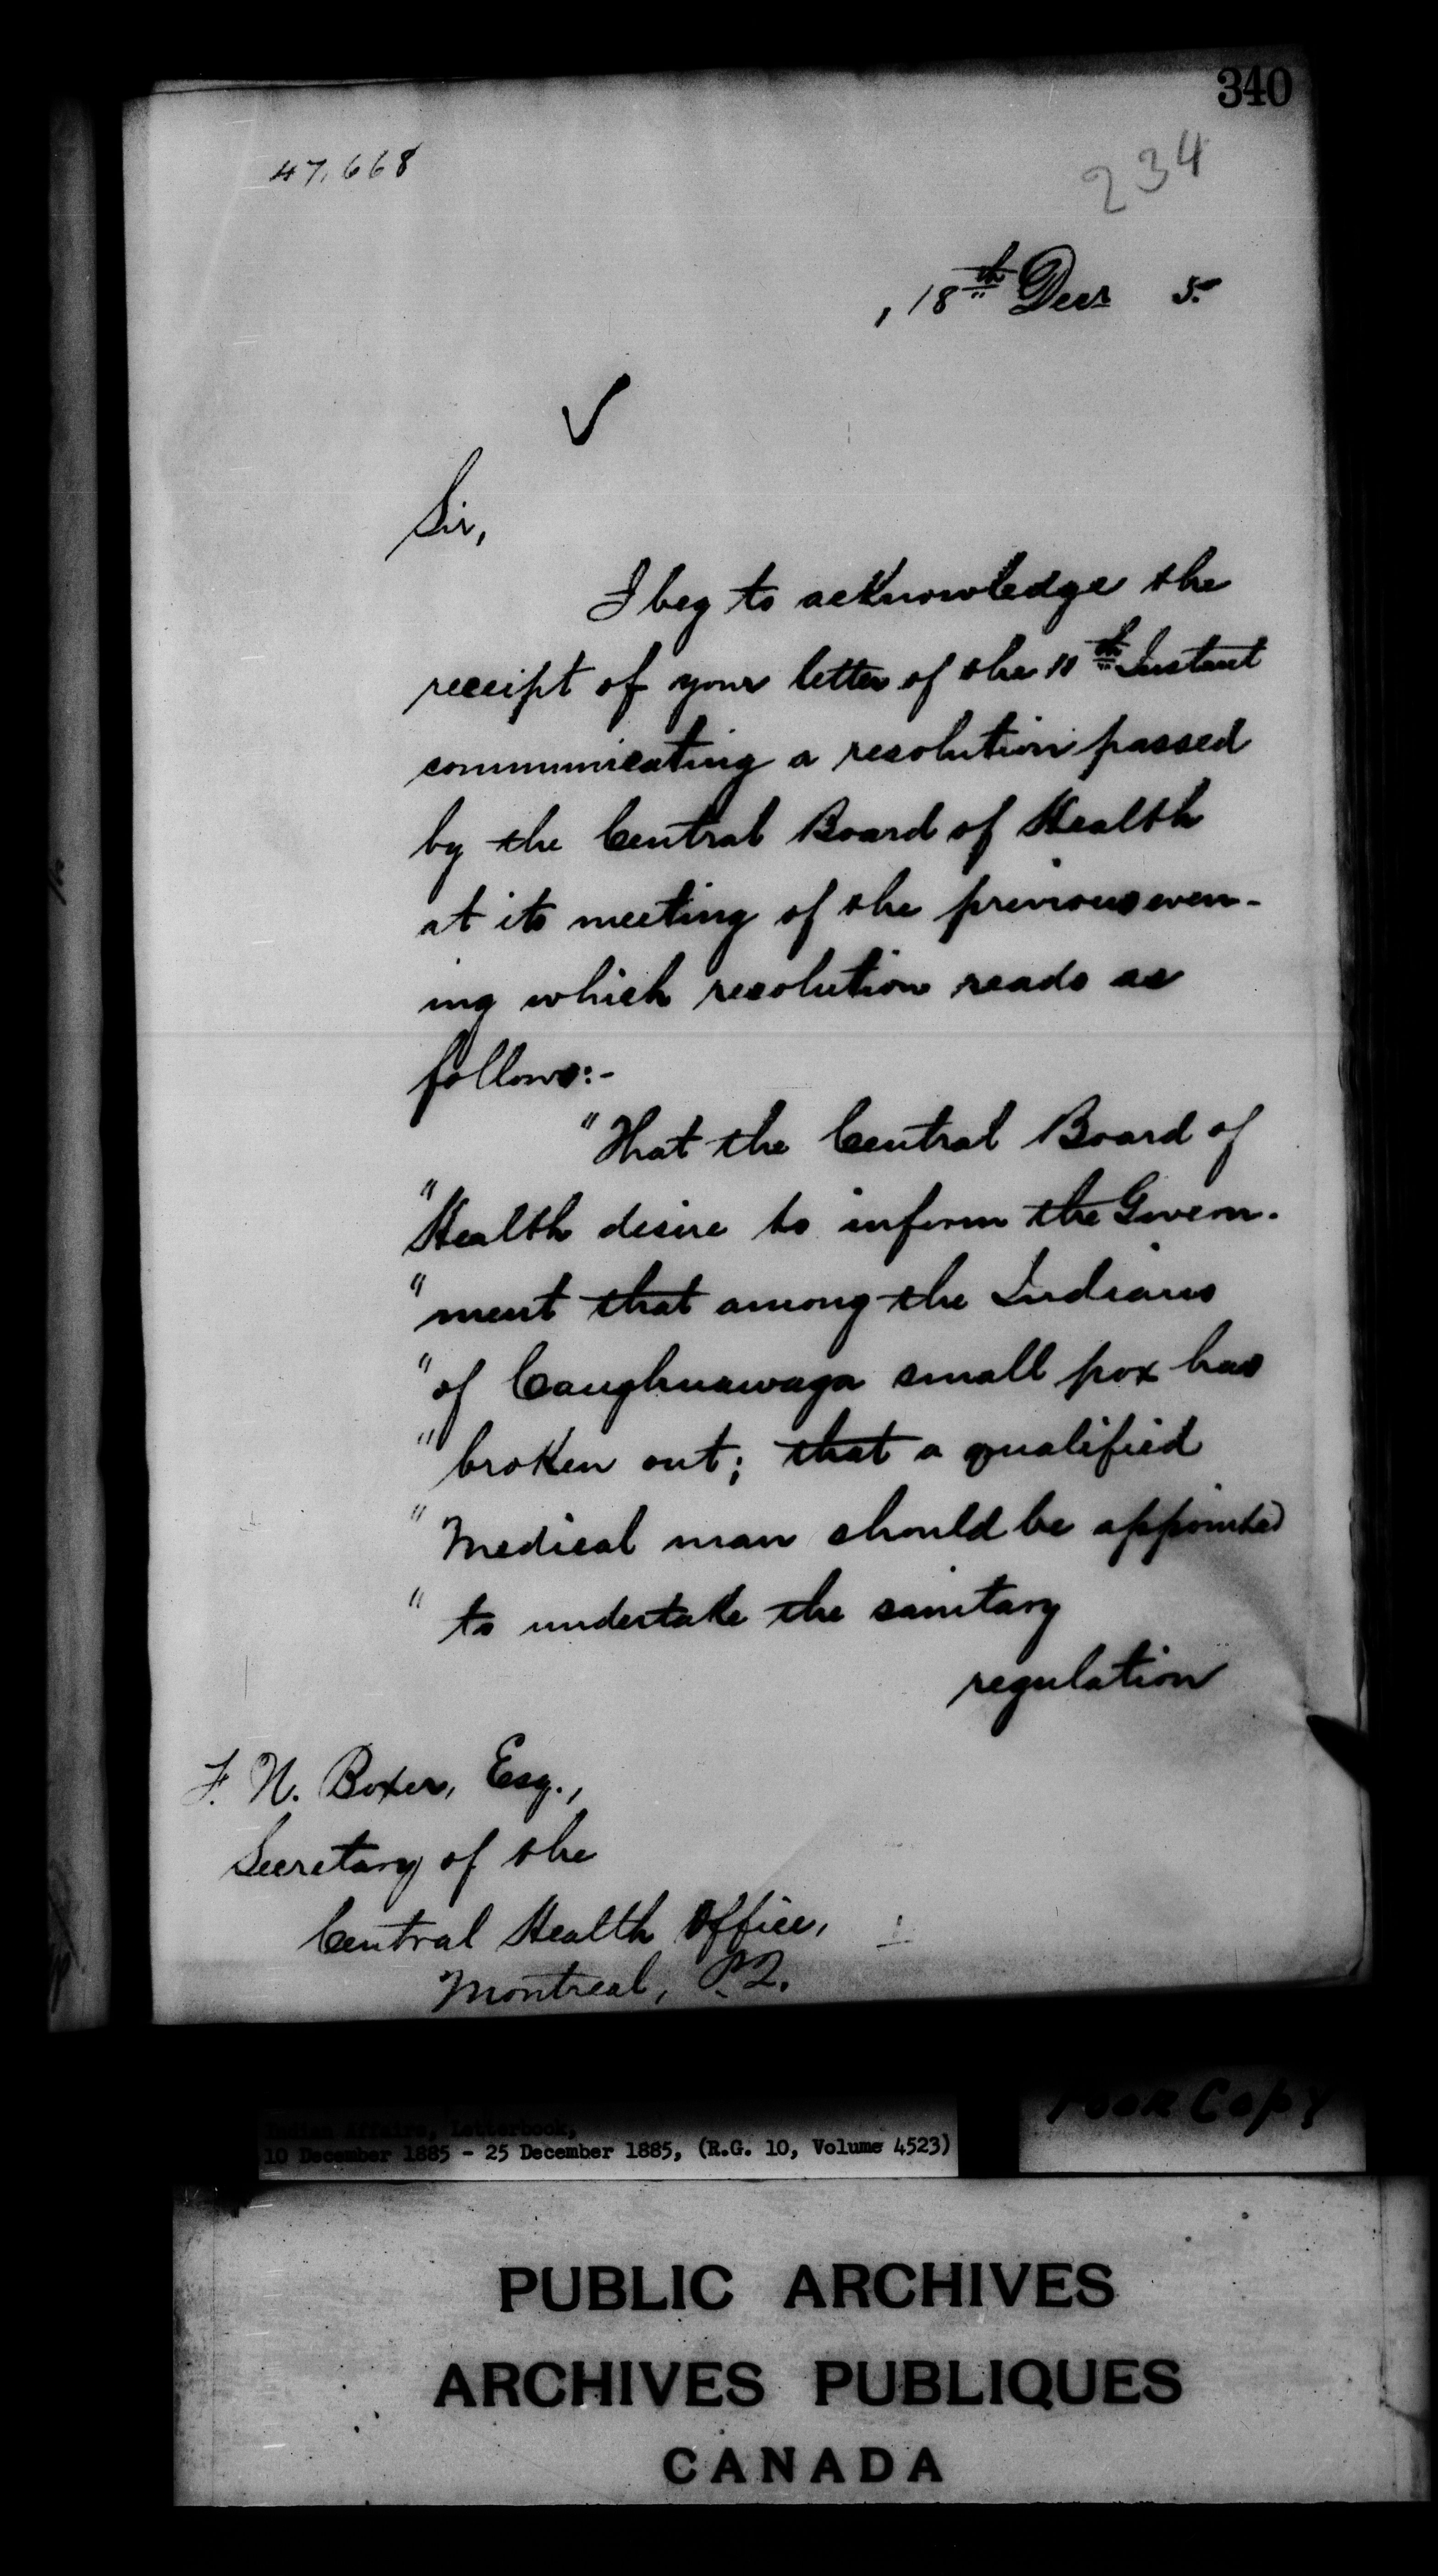 340
47,668
234
, 18th Decr 5
Sir,
I beg to acknowledge the
receipt of your letter of the 11th Instant
communicating a resolution passed
by the Central Board of Health
at its meeting of the previous even-
ing which resolution reads as
follows:-
"That the Central Board of
"Health desire to inform the Govern-
"ment that among the Indians
"of Caughnawaga small pox has
"broken out; that a qualified
"Medical man should be appointed
"to undertake the sanitary
regulation
F. N. Boxer, Esq.,
Secretary of the
Central Health Office,
Montreal, P.Q.
Poor Copy
Indian Affairs, Letterbook,
10 December 1885 - 25 December 1885, (R.G. 10, Volume 4523)
PUBLIC ARCHIVES
ARCHIVES PUBLIQUES
CANADA